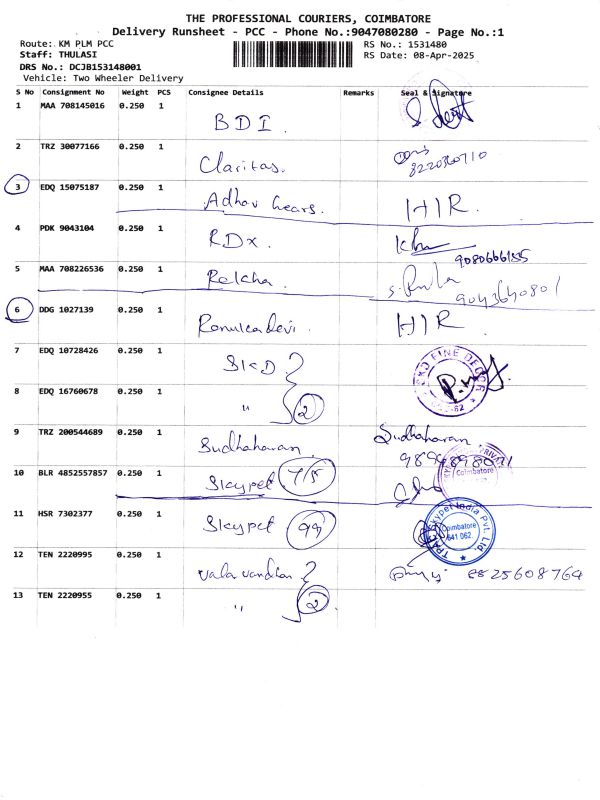 THE PROFESSIONAL COURIERS, COIMBATORE
Delivery Runsheet - PCC - Phone No.:9047080280 - Page No.:1
Route: KM PLM PCC
RS No.: 1531480
Staff: THULASI
RS Date: 08-Apr-2025
DRS No.: DCJB153148001
Vehicle: Two Wheeler Delivery
S No Consignment No Weight PCS Consignee Details Remarks Seal & Signature
1 MAA 708145016 0.250 1 BDI.
2 TRZ 30077166 0.250 1 Claritas.
3 EDQ 15075187 0.250 1 Adhav hears. HIR.
4 PDK 9043104 0.250 1 RDX.
5 MAA 708226536 0.250 1 Rekha.
6 DDG 1027139 0.250 1 Renukadevi. HIR
7 EDQ 10728426 0.250 1 SKD
8 EDQ 16760678 0.250 1 " 2
9 TRZ 200544689 0.250 1 Sudhaharan. Sudhaharan
10 BLR 4852557857 0.250 1 Skypet Coimbatore
11 HSR 7302377 0.250 1 Skypet 99 Skypet India Pvt. Ltd. Coimbatore 641 062.
12 TEN 2220995 0.250 1 8825608764
13 TEN 2220955 0.250 1 " 2